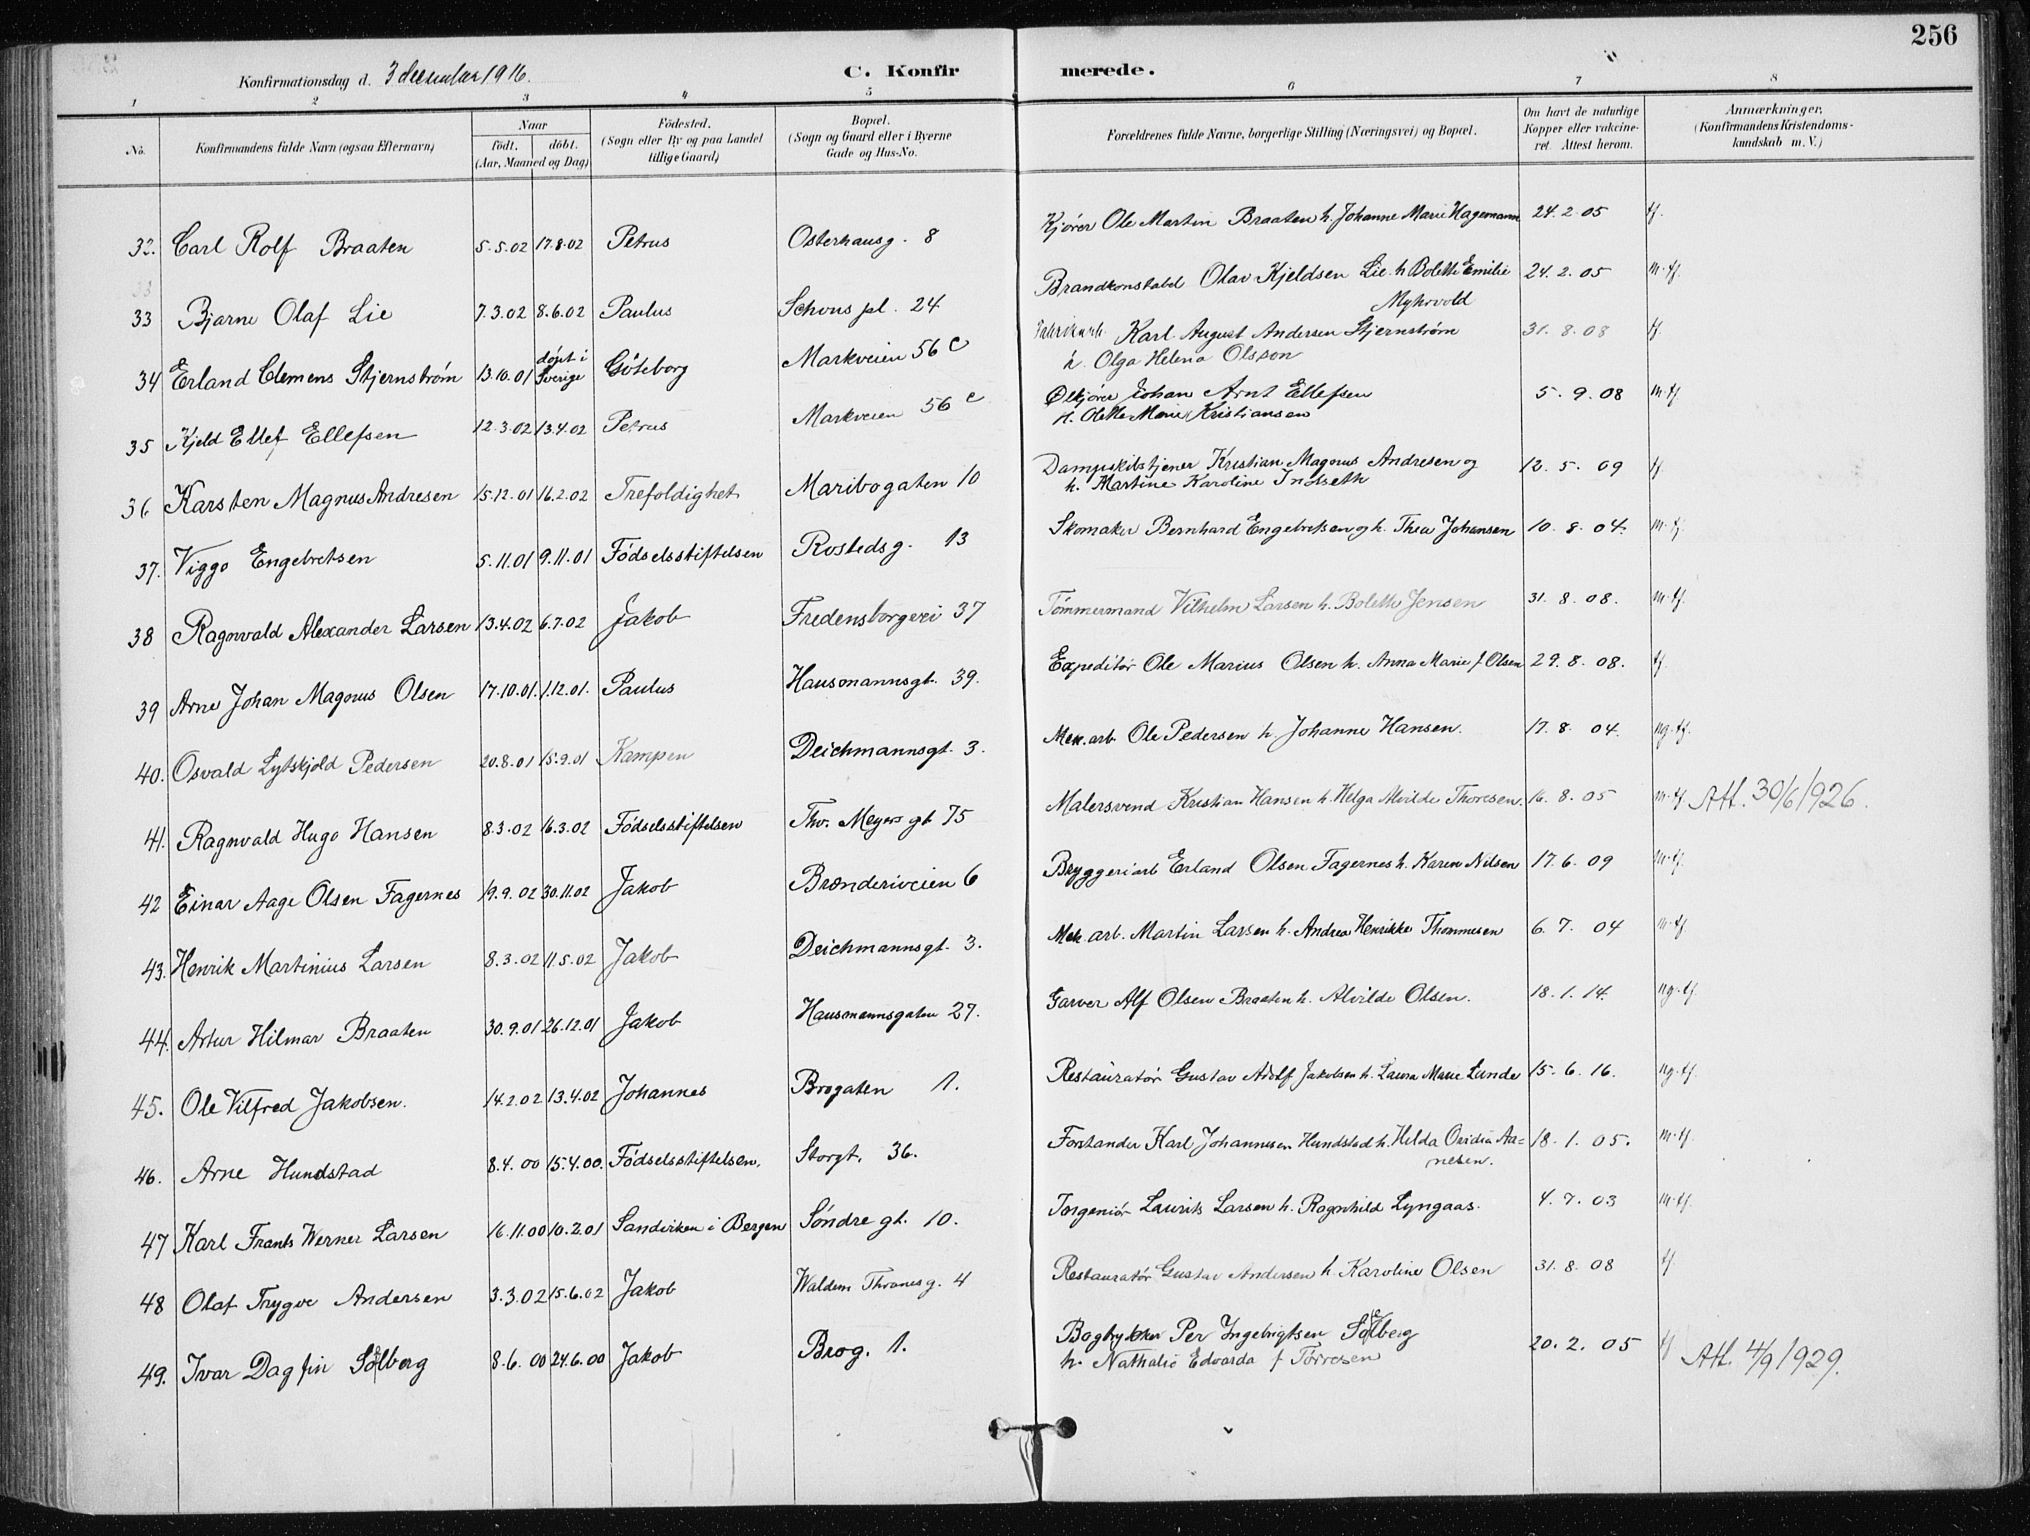 256
Konfirmationsdag d. 3 december 1916. C. Konfirmerede.
1 2 3 4 5 6 7 8
No. Konfirmandens fulde Navn (ogsaa Efternavn) Naar født. døbt. (Aar, Maaned og Dag) Fødested. (Sogn eller By og paa Landet tillige Gaard) Bopæl. (Sogn og Gaard eller i Byerne Gade og Hus-No. Forældrenes fulde Navne, borgerlige Stilling (Næringsvei) og Bopæl. Om havt de naturlige Kopper eller vakcineret. Attest herom. Anmærkninger. (Konfirmandens Kristendomskundskab m. V.)
32. Carl Rolf Braaten 5.5.02 17.8.02 Petrus Osterhausg. 8 Kjører Ole Martin Braaten h. Johanne Marie Hagemann 24.2.05 tf.
33 Bjarne Olaf Lie 7.3.02 8.6.02 Paulus Schous pl. 24 Brandkonstabel Olav Kjeldsen Lie h Bolette Emilie Myhrvold 24.2.05 m.tf.
34 Erland Clemens Stjernstrøm 13.10.01 døpt i Sverige Göteborg Markveien 56 c Fabrikarb. Karl August Andersen Stjernstrøm
h. Olga Helena Olsson 31.8.08 tf
35 Kjeld Ellef Ellefsen 12.3.02 13.4.02 Petrus Markveien 56 c Ølkjører Johan Arnt Ellefsen
h. Olette Marie Kristiansen 5.9.08 m.tf
36 Karsten Magnus Andresen 15.12.01 16.2.02 Trefoldighet Maribogaten 10 Dampskibstjener Kristian Magnus Andresen og
h. Martine Karoline Indseth 12.5.09 tf.
37. Viggo Engebretsen 5.11.01 9.11.01 Fødselsstiftelsen Rostedsg. 13 Skomaker Bernhard Engebretsen og h. Thea Johansen 10.8.04. m.tf.
38 Ragnvald Alexander Larsen 13.4.02 6.7.02 Jakob Fredensborgvei 37 Tømmermand Vilhelm Larsen h. Bolette Jensen 31.8.08. m.tf.
39 Arne Johan Magnus Olsen 17.10.01. 1.12.01. Paulus Hausmannsgt. 39. Expeditør Ole Marius Olsen h. Anna Marie f Olsen 29.8.08. tf.
40. Osvald Lytskjold Pedersen 20.8.01 15.9.01 Kampen Deichmannsgt. 3. Mek. arb. Ole Pedersen h. Johanne Hansen. 17.8.04. ng.tf.
41. Ragnvald Hugo Hansen 8.3.02 16.3.02 Fødselsstiftelsen Thv. Meyers gt 75 Malersvend Kristian Hansen h. Helga Alvilde Thoresen. 16.8.05 m.tf Att. 30/6 1926.
42 Einar Aage Olsen Fagernes 19.9.02 30.11.02 Jakob Brænderiveien 6 Bryggeriarb Erland Olsen Fagernes h. Karen Nilsen 17.6.09 m.tf.
43. Henrik Martinius Larsen 8.3.02 11.5.02 Jakob Deichmannsgt. 3. Mek. arb. Martin Larsen h. Andrea Henrikke Thommesen 6.7.04 m.tf
44. Artur Hilmar Braaten 30.9.01 26.12.01 Jakob Hausmannsgaten 27. Garver Alf Olsen Braaten h. Alvilde Olsen. 18.1.14. ng.tf.
45. Ole Vilfred Jakobsen. 14.2.02 13.4.02 Johannes Brogaten 1. Restauratør Gustav Adolf Jakobsen h. Laura Marie Lunde 15.6.16. ng.tf.
46. Arne Hundstad 8.4.00 15.4.00. Fødselsstiftelsen. Storgt. 36. Forstander Karl Johannesen Hundstad h. Hilda Ovidia Aanesen. 18.1.05. m.tf.
47 Karl Frants Werner Larsen 16.11.00 10.2.01 Sandviken i Bergen Søndre gt. 10. Ingeniør Laurits Larsen h. Ragnhild Lyngaas. 4.7.03 m.tf.
48 Olaf Trygve Andersen 3.3.02 15.6.02 Jakob Waldem Thranesg. 4 Restauratør Gustav Andersen h. Karoline Olsen 31.8.08 tf
49. Ivar Dagfin Solberg 8.6.00 24.6.00 Jakob Brog. 1. Bogtrykker Per Ingebrigtsen Solberg
h. Nathalie Edvarda f Tørresen 20.2.05 tf Att. 4/9 1929.